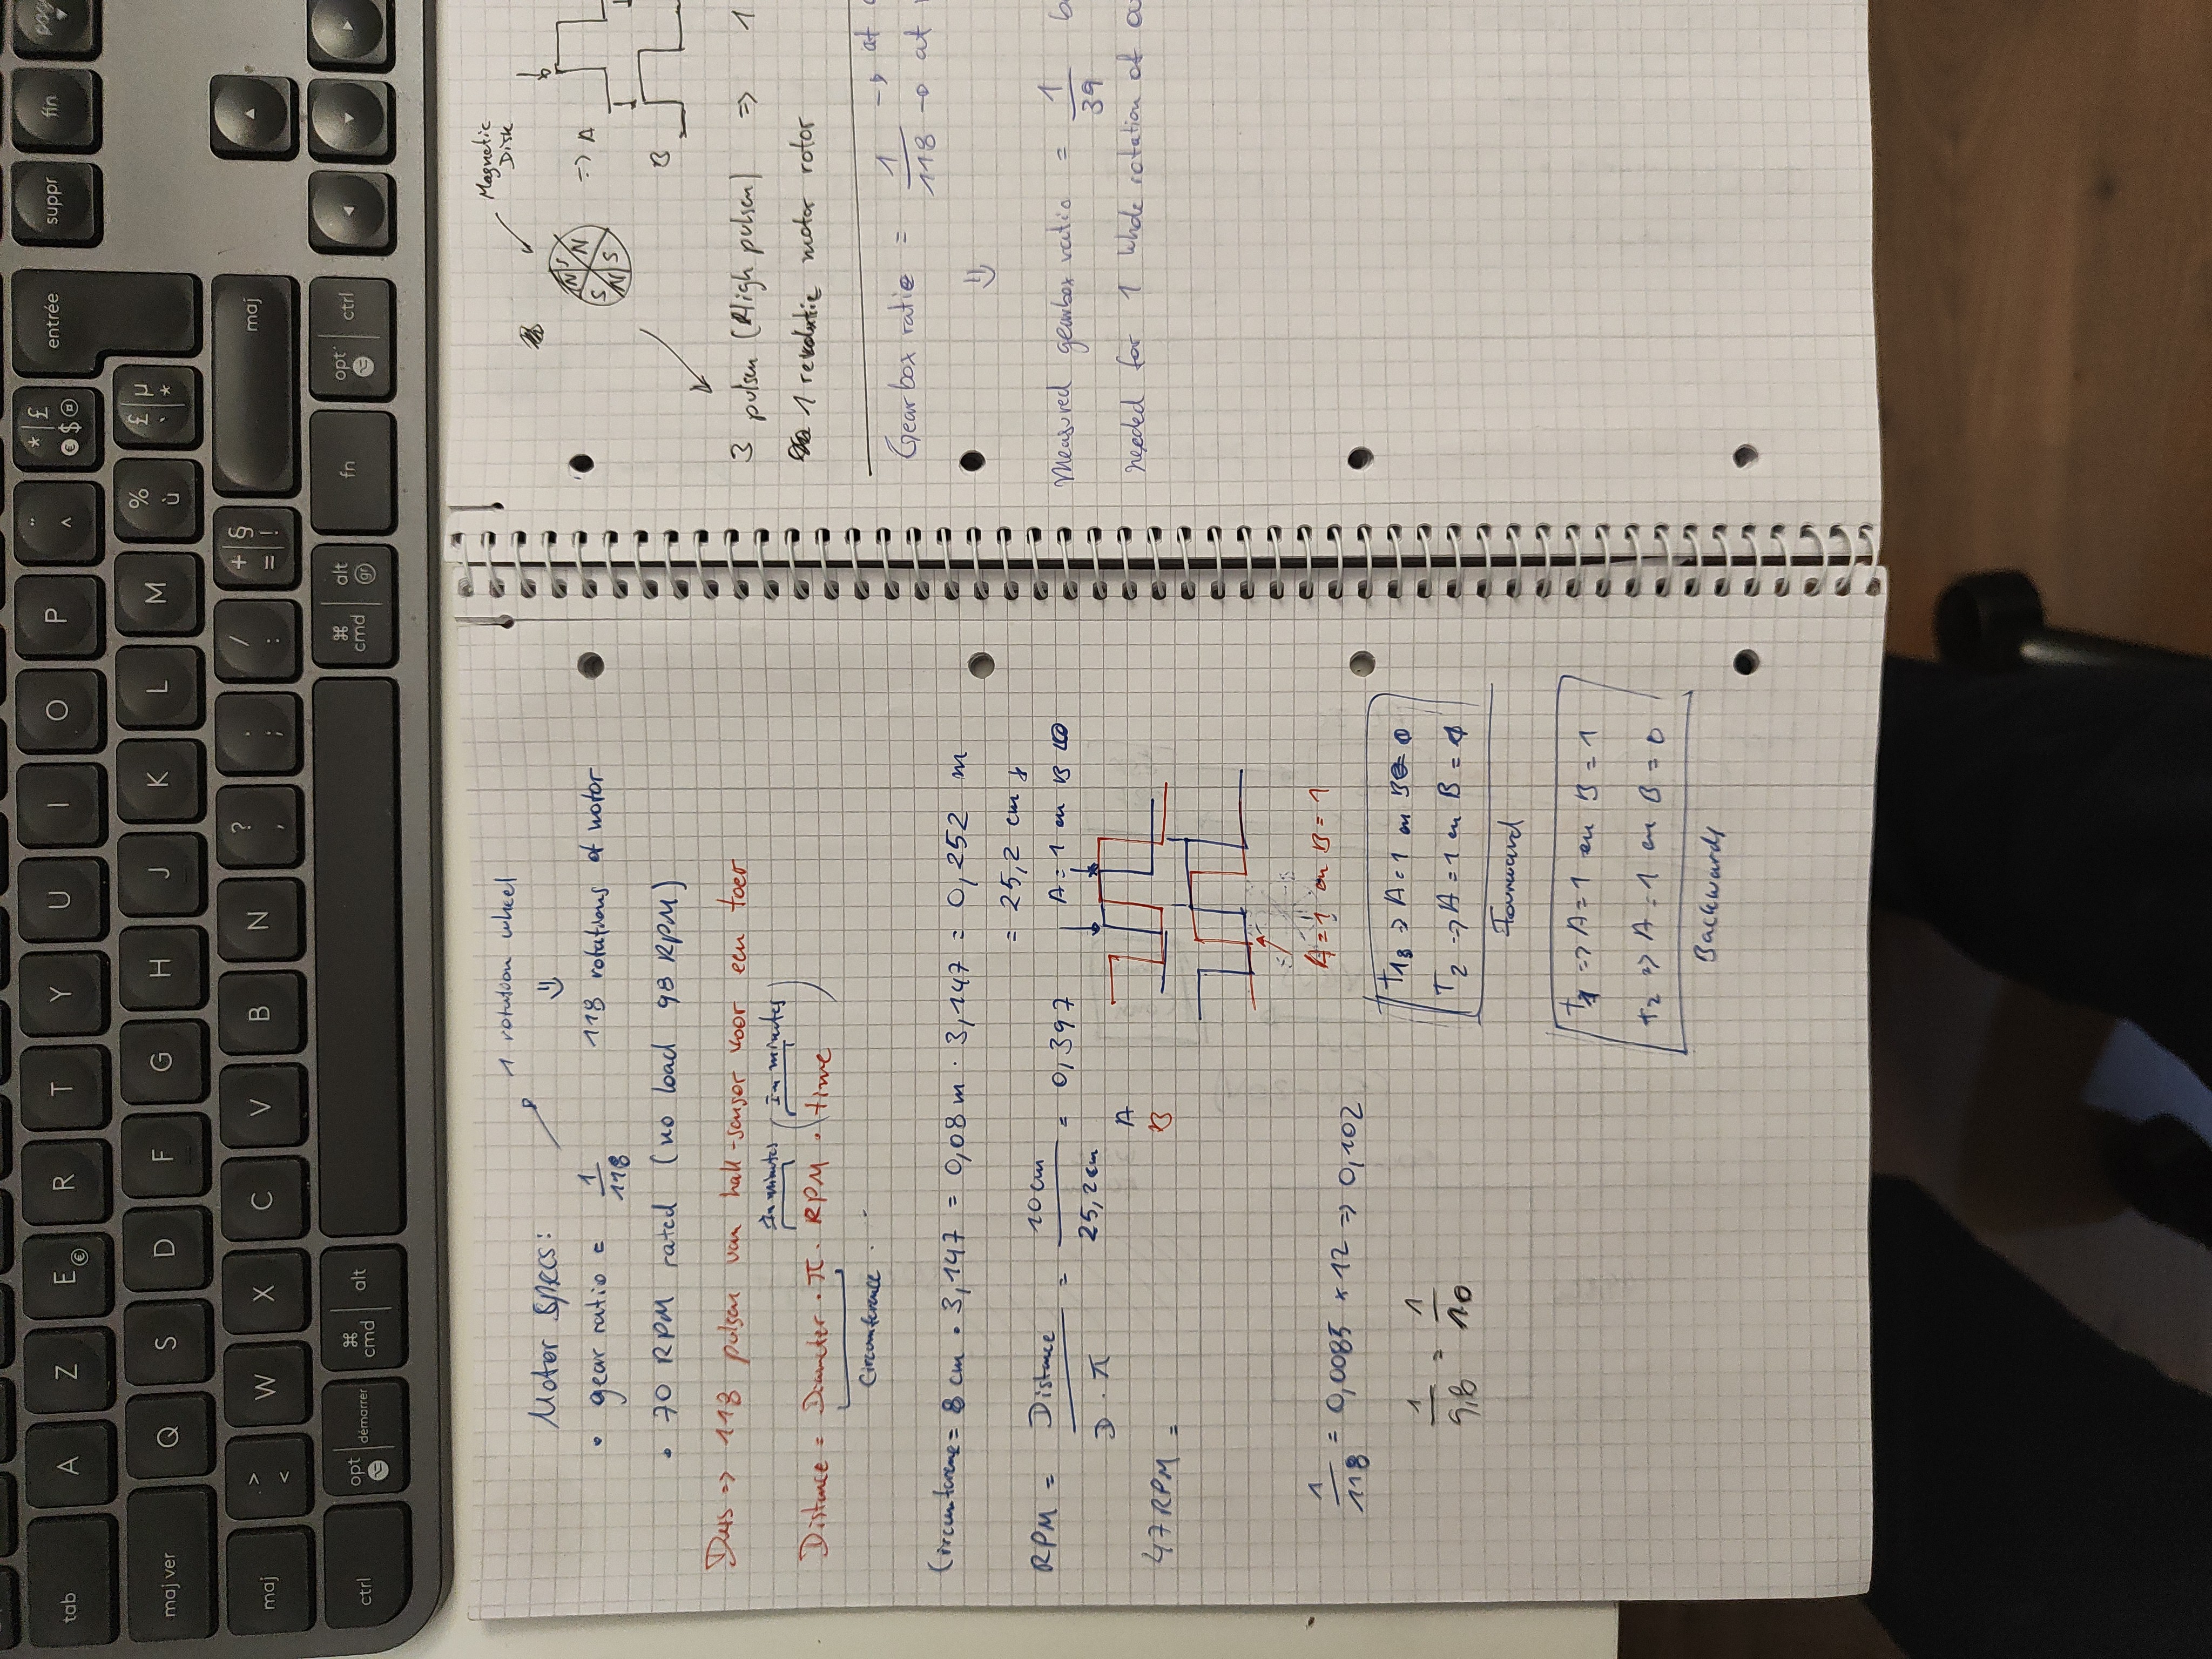 tab A Z E € R T Y U I O P ¨ ^ * £ € $ ¤ entrée suppr fin
maj ver Q S D F G H J K L M % ù £ ` µ *
maj > < W X C V B N ? , . ; / : + = § ! maj
ctrl opt démarrer cmd alt cmd alt gr fn opt ctrl
1 rotation wheel
Motor Specs:
⇓
• gear ratio = 1/118
118 rotations of motor
• 70 RPM rated (no load 98 RPM)
Dus => 118 pulsen van hall-sensor voor een toer
In minutes (In minutes)
Distance = Diameter . π . RPM . (time)
Circumference
Circumference = 8 cm . 3,147 = 0,08 m . 3,147 = 0,252 m
= 25,2 cm
RPM = Distance / D . π = 10 cm / 25,2 cm = 0,397
A = 1 en B
A
B
47 RPM =
A = 1 en B = 1
1/118 = 0,0085 × 12 => 0,102
1/9,8 = 1/10
=> A = 1 en B = 0
T2 => A = 1 en B = 1
Fourward
=> A = 1 en B = 1
t2 => A = 1 en B = 0
Backwards
Magnetic
Disk
N S N S N S
=> A
B
3 pulsen (High pulsen) => 1
1 revolutie motor rotor
Gearbox ratio = 1/118 → at
→ at
⇓
Measured gearbox ratio = 1/39
needed for 1 whole rotation of